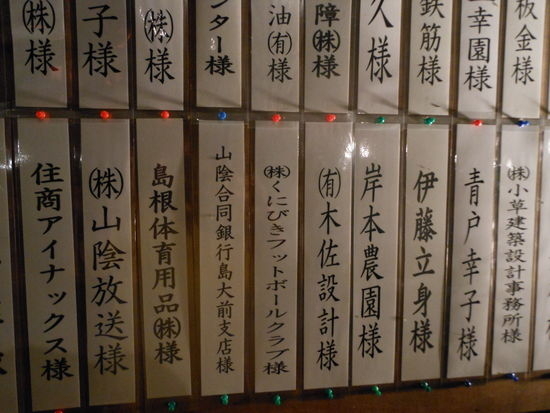 板金様
幸園様
鉄筋様
久様
障㈱様
油㈲様
ンター様
㈱様
子様
㈱様
㈱小草建築設計事務所様
青戸幸子様
伊藤立身様
岸本農園様
㈲木佐設計様
㈱くにびきフットボールクラブ様
山陰合同銀行島大前支店様
島根体育用品㈱様
㈱山陰放送様
住商アイナックス様